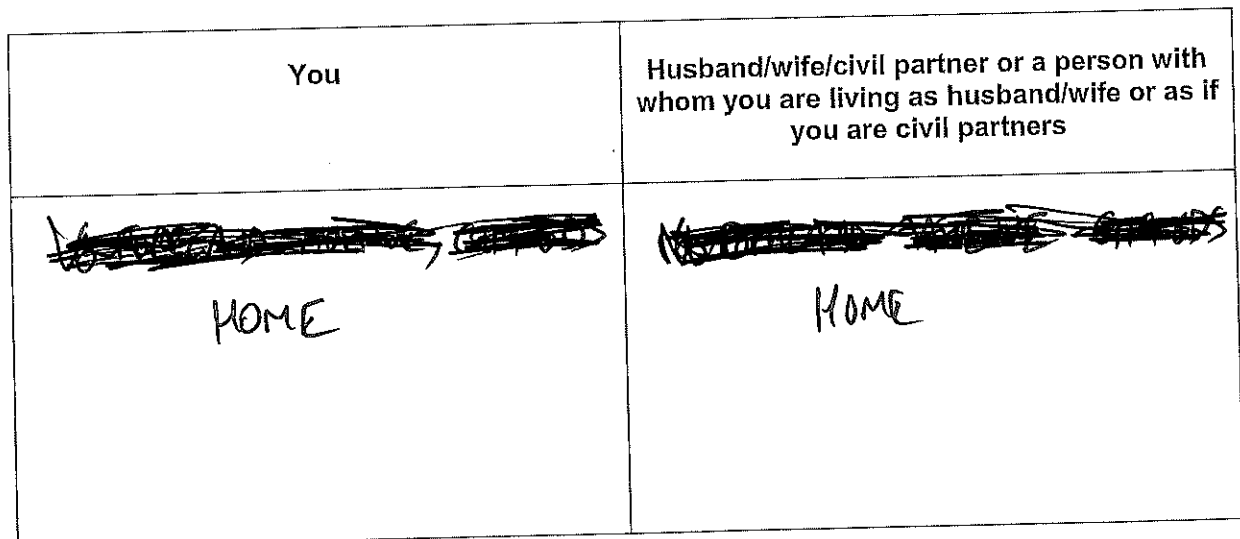 You
Husband/wife/civil partner or a person with
whom you are living as husband/wife or as if
you are civil partners
HOME
HOME